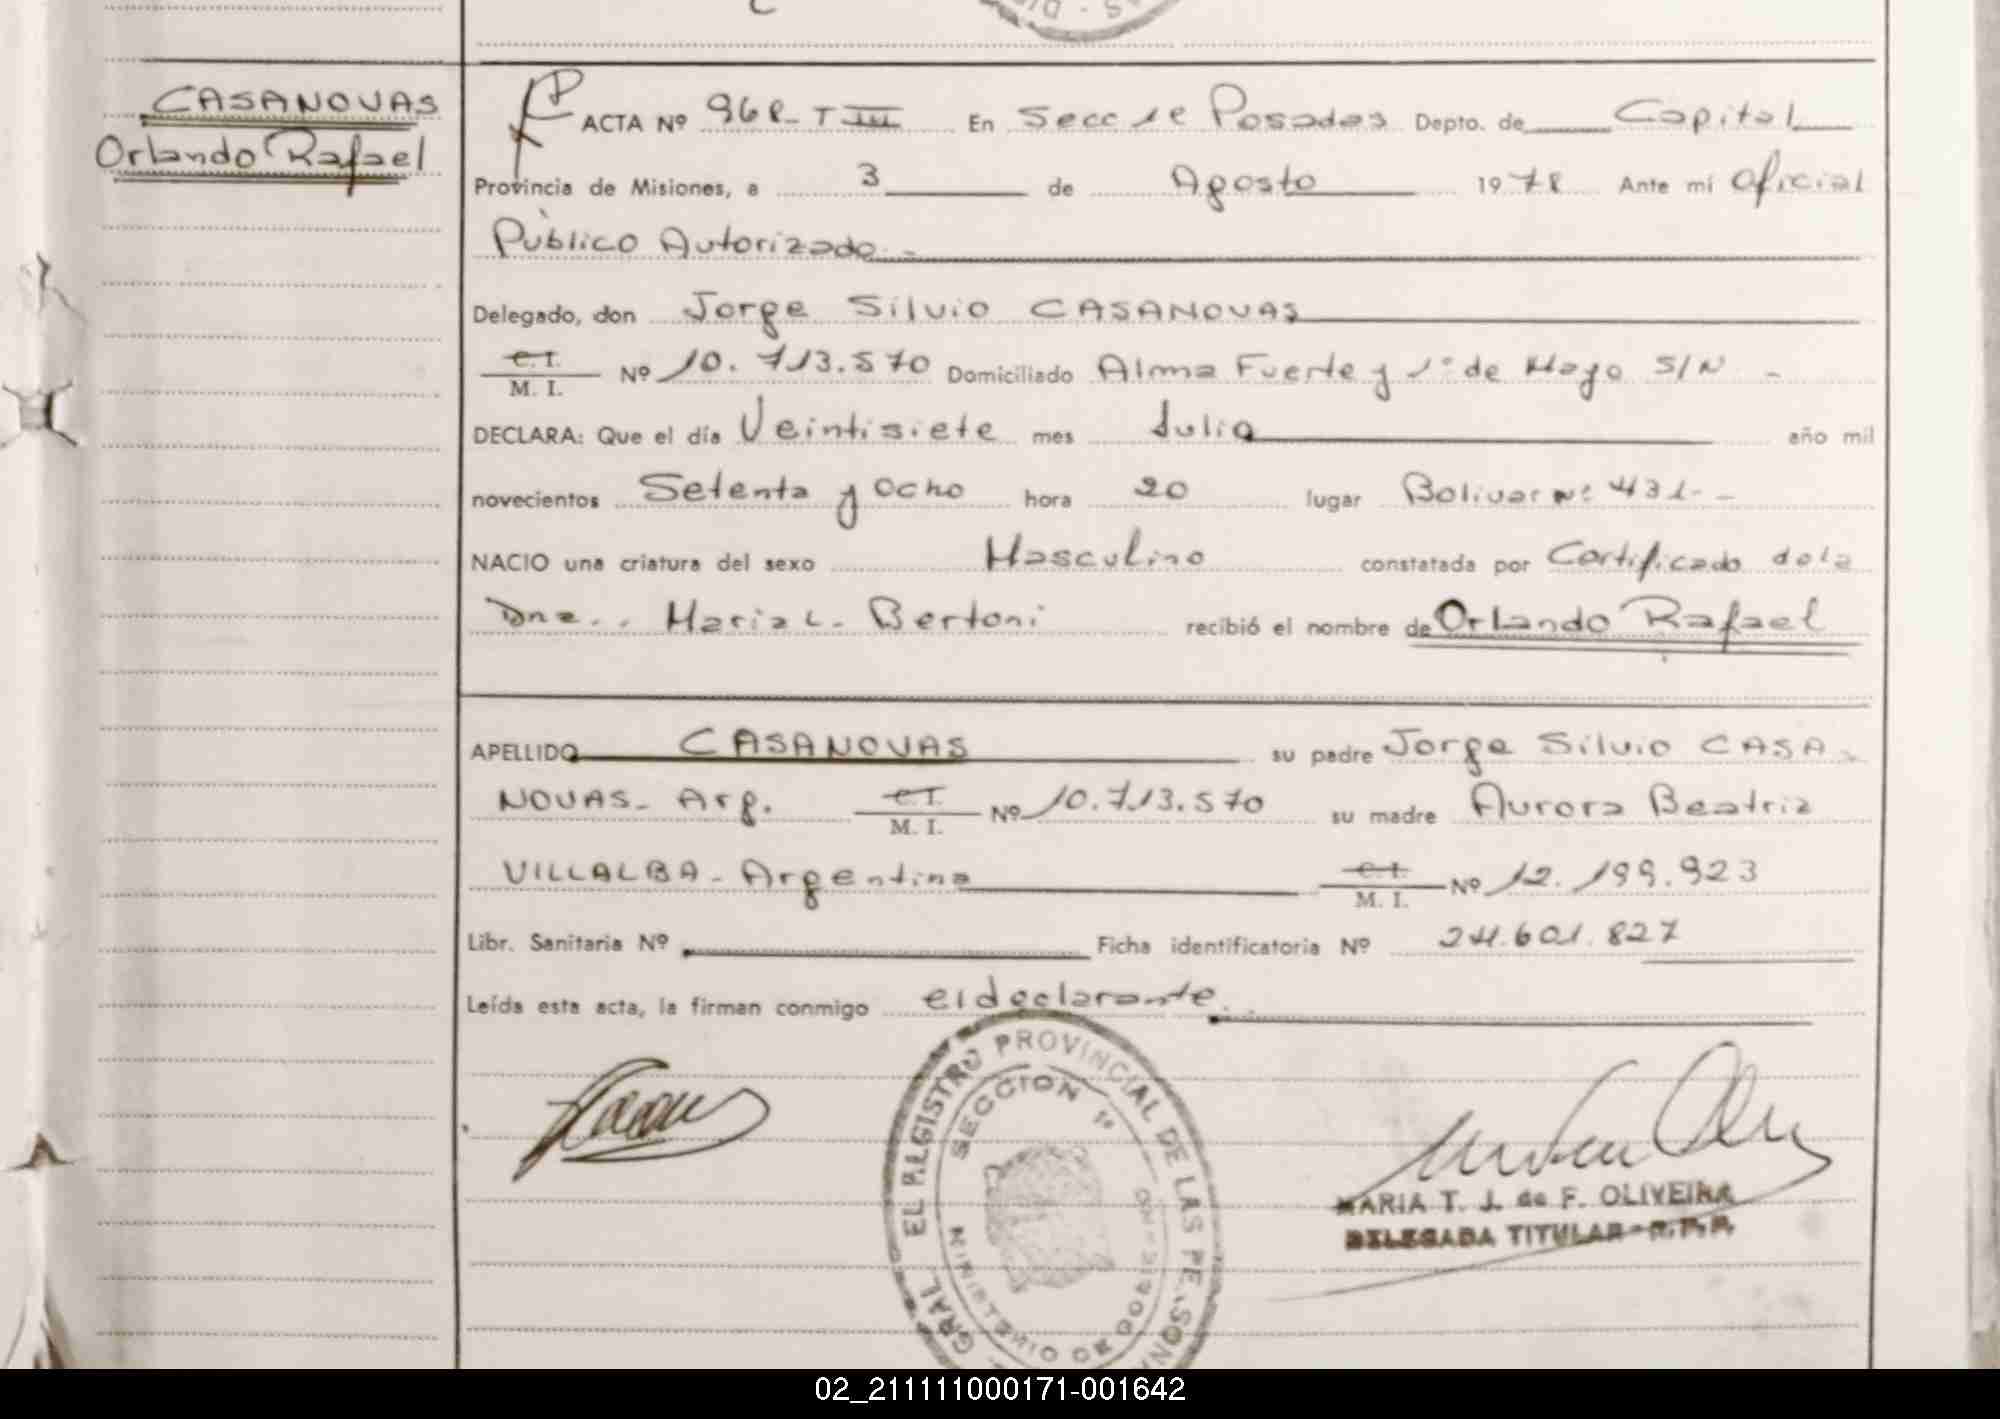 CASANOVAS
Orlando Rafael
ACTA Nº 968- T III En Secc 1ª Posadas Depto. de Capital
Provincia de Misiones, a 3 de Agosto 1978 Ante mi Oficial
Público Autorizado.-
Delegado, don Jorge Silvio CASANOVAS
C.I.
M. I. Nº 10.713.570 Domiciliado Alma Fuerte y 1º de Mayo S/N -
DECLARA: Que el día Veintisiete mes Julio año mil
novecientos Setenta y Ocho hora 20 lugar Bolivar Nº 431.- -
NACIO una criatura del sexo Masculino constatada por Certificado de la
Dra.. Maria L. Bertoni recibió el nombre de Orlando Rafael
APELLIDO CASANOVAS su padre Jorge Silvio CASA-
NOVAS- Arg. C.I.
M. I. Nº 10.713.570 su madre Aurora Beatriz
VILLALBA- Argentina C.I.
M. I. Nº 12.199.923
Libr. Sanitaria Nº Ficha identificatoria Nº 24.601.827
Leída esta acta, la firman conmigo el declarante.
GRAL EL REGISTRO PROVINCIAL DE LAS PERSONA
SECCION 1ª
MINISTERIO DE GOBIERNO
MARIA T. J. de F. OLIVEIRA
DELEGADA TITULAR - R.P.P.
02_211111000171-001642